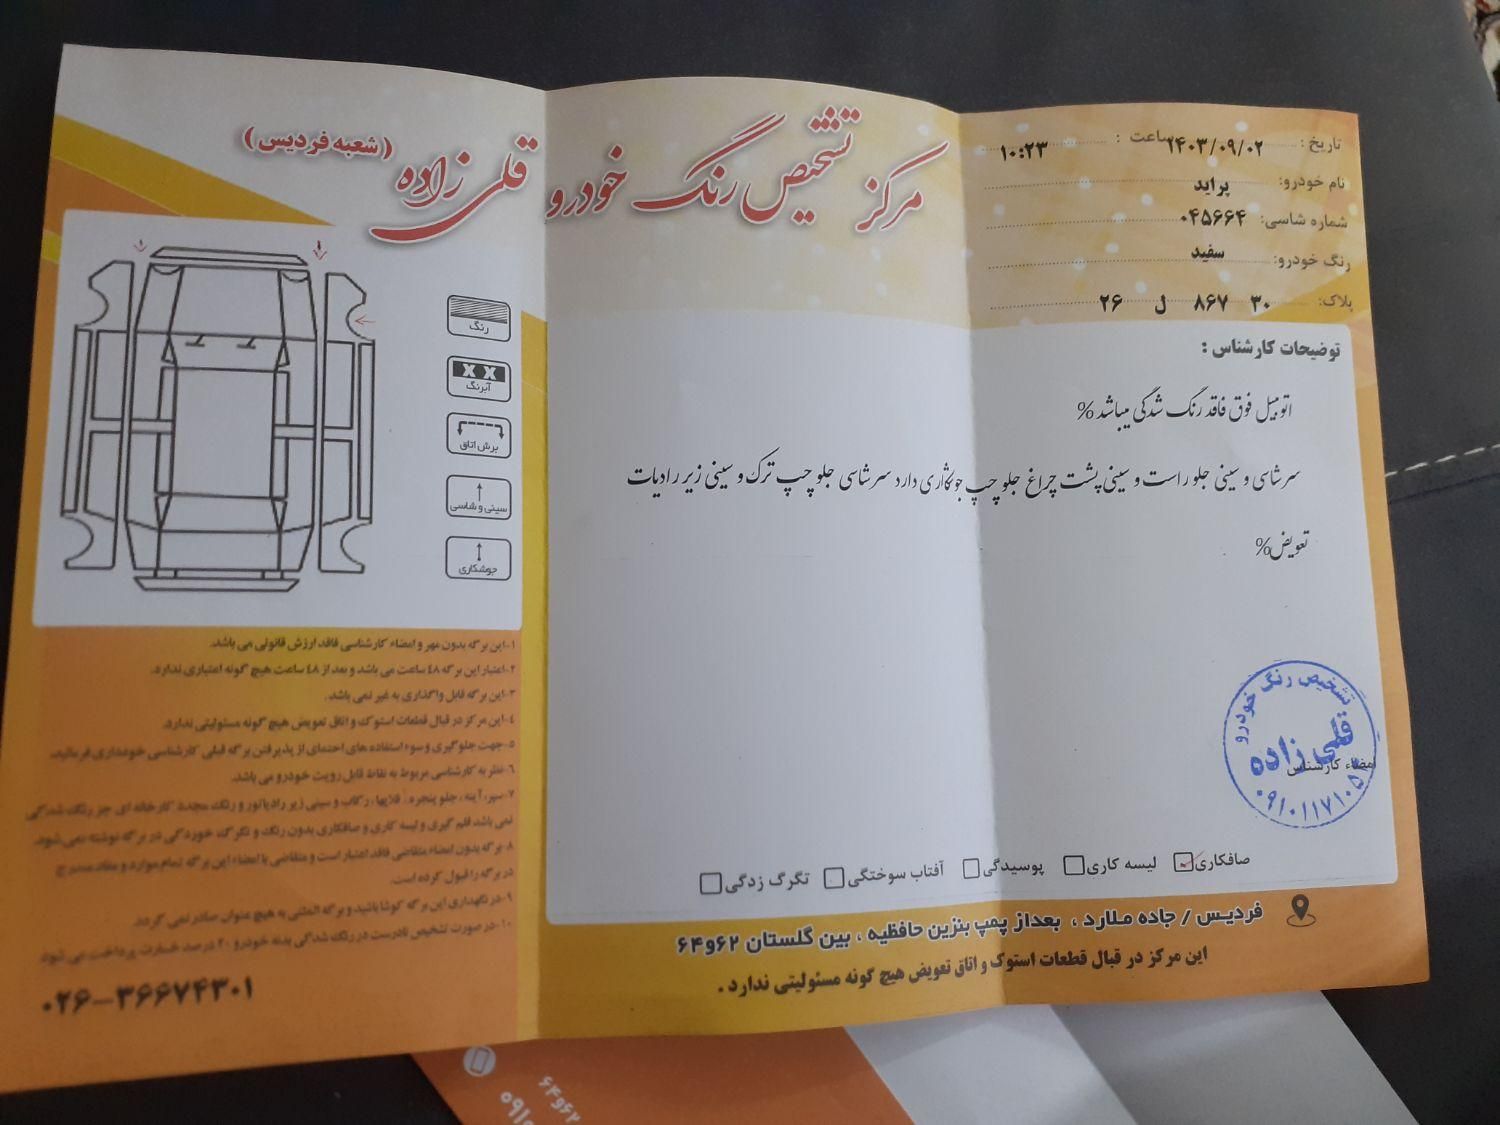 مرکز تشخیص رنگ خودرو قلی زاده (شعبه فردیس)
تاریخ : ۱۴۰۳/۰۹/۰۲ ساعت : ۱۰:۲۳
نام خودرو: پراید
شماره شاسی: ۰۴۵۶۶۴
رنگ خودرو: سفید
پلاک: ۳۰ ۸۶۷ ل ۲۶
توضیحات کارشناس :
اتومبیل فوق فاقد رنگ شدگی میباشد%
سرشاسی و سینی جلو راست و سینی پشت چراغ جلو چپ جوشکاری دارد سرشاسی جلو چپ ترک و سینی زیر رادیات
تعویض%
تشخیص رنگ خودرو
قلی زاده
۰۹۱۰۱۱۷۱۰۵
امضاء کارشناس
صافکاری لیسه کاری پوسیدگی آفتاب سوختگی تگرگ زدگی
فردیس / جاده ملارد ، بعداز پمپ بنزین حافظیه ، بین گلستان ۶۲و۶۴
این مرکز در قبال قطعات استوک و اتاق تعویض هیچ گونه مسئولیتی ندارد .
رنگ
X X
آبرنگ
برش اتاق
سینی و شاسی
جوشکاری
۱-این برگه بدون مهر و امضاء کارشناسی فاقد ارزش قانونی می باشد.
۲-اعتبار این برگه ۴۸ ساعت می باشد و بعد از ۴۸ ساعت هیچ گونه اعتباری ندارد.
۳-این برگه قابل واگذاری به غیر نمی باشد.
۴-این مرکز در قبال قطعات استوک و اتاق تعویض هیچ گونه مسئولیتی ندارد.
۵-جهت جلوگیری و سوء استفاده های احتمالی از پذیرفتن برگه قبلی کارشناسی خودداری فرمائید.
۶-نظریه کارشناسی مربوط به نقاط قابل رویت خودرو می باشد.
۷-سپر، آینه، جلو پنجره، قلاپها، رکاب و سینی زیر رادیاتور و رنگ مجدد کارخانه ای جز رنگ شدگی
نمی باشد قلم گیری و لیسه کاری و صافکاری بدون رنگ و تگرگ خوردگی در برگه نوشته نمی شود.
۸-برگه بدون امضاء متقاضی فاقد اعتبار است و متقاضی با امضاء این برگه تمام موارد و مفاد مندرج
در برگه را قبول کرده است.
۹-در نگهداری این برگه کوشا باشید و برگه المثنی به هیچ عنوان صادر نمی گردد.
۱۰-در صورت تشخیص نادرست در رنگ شدگی بدنه خودرو ۲۰ درصد خسارت پرداخت می شود
۰۲۶-۳۶۶۷۴۳۰۱
۶۲و۶۴
۰۹۱۰